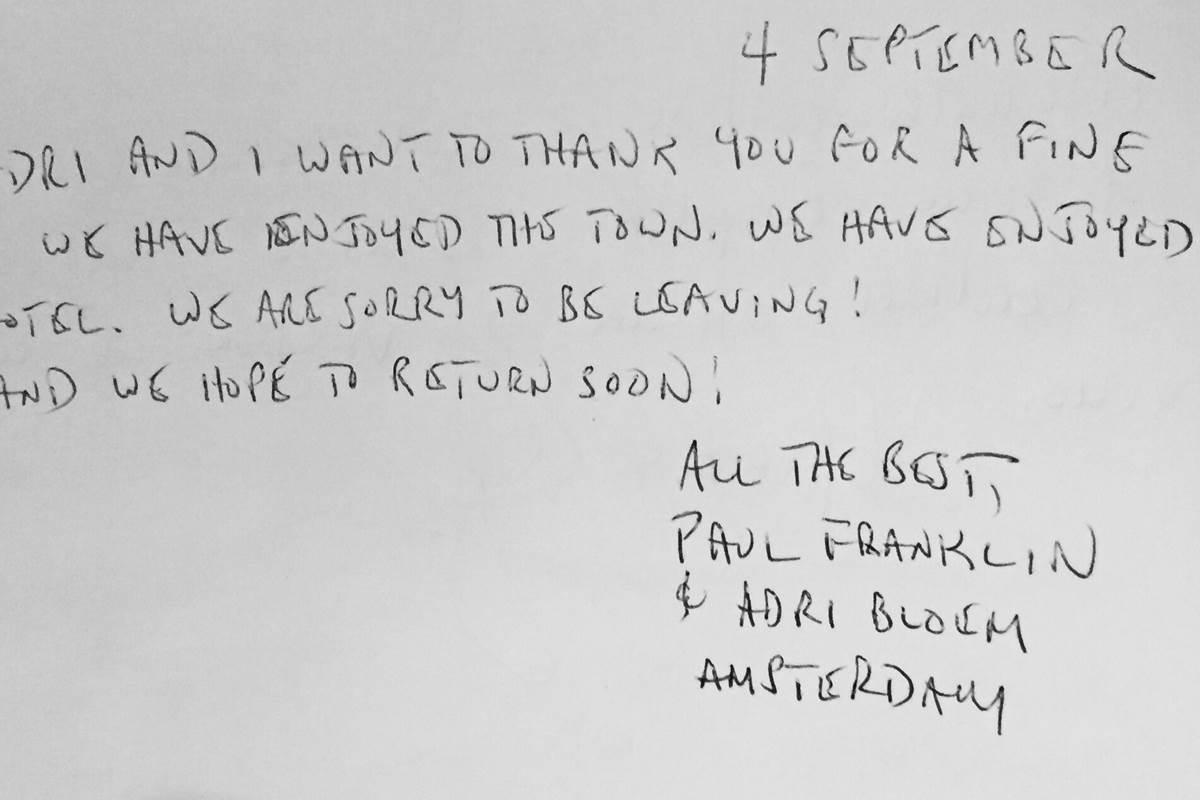 4 SEPTEMBER
DRI AND I WANT TO THANK YOU FOR A FINE
WE HAVE ENJOYED THE TOWN. WE HAVE ENJOYED
OTEL. WE ARE SORRY TO BE LEAVING!
AND WE HOPE TO RETURN SOON!
ALL THE BEST,
PAUL FRANKLIN
& ADRI BLOEM
AMSTERDAM